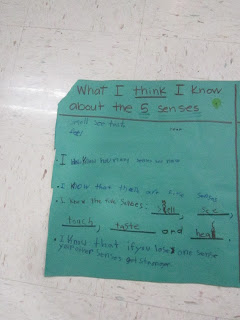 What I think I know
about the 5 senses
smell see touch
• I know how many senses we have
• I know that there are five senses
• I know the five senses: smell, see,
touch, taste and hear.
• I know that if you lose one sense
your other senses get stronger.